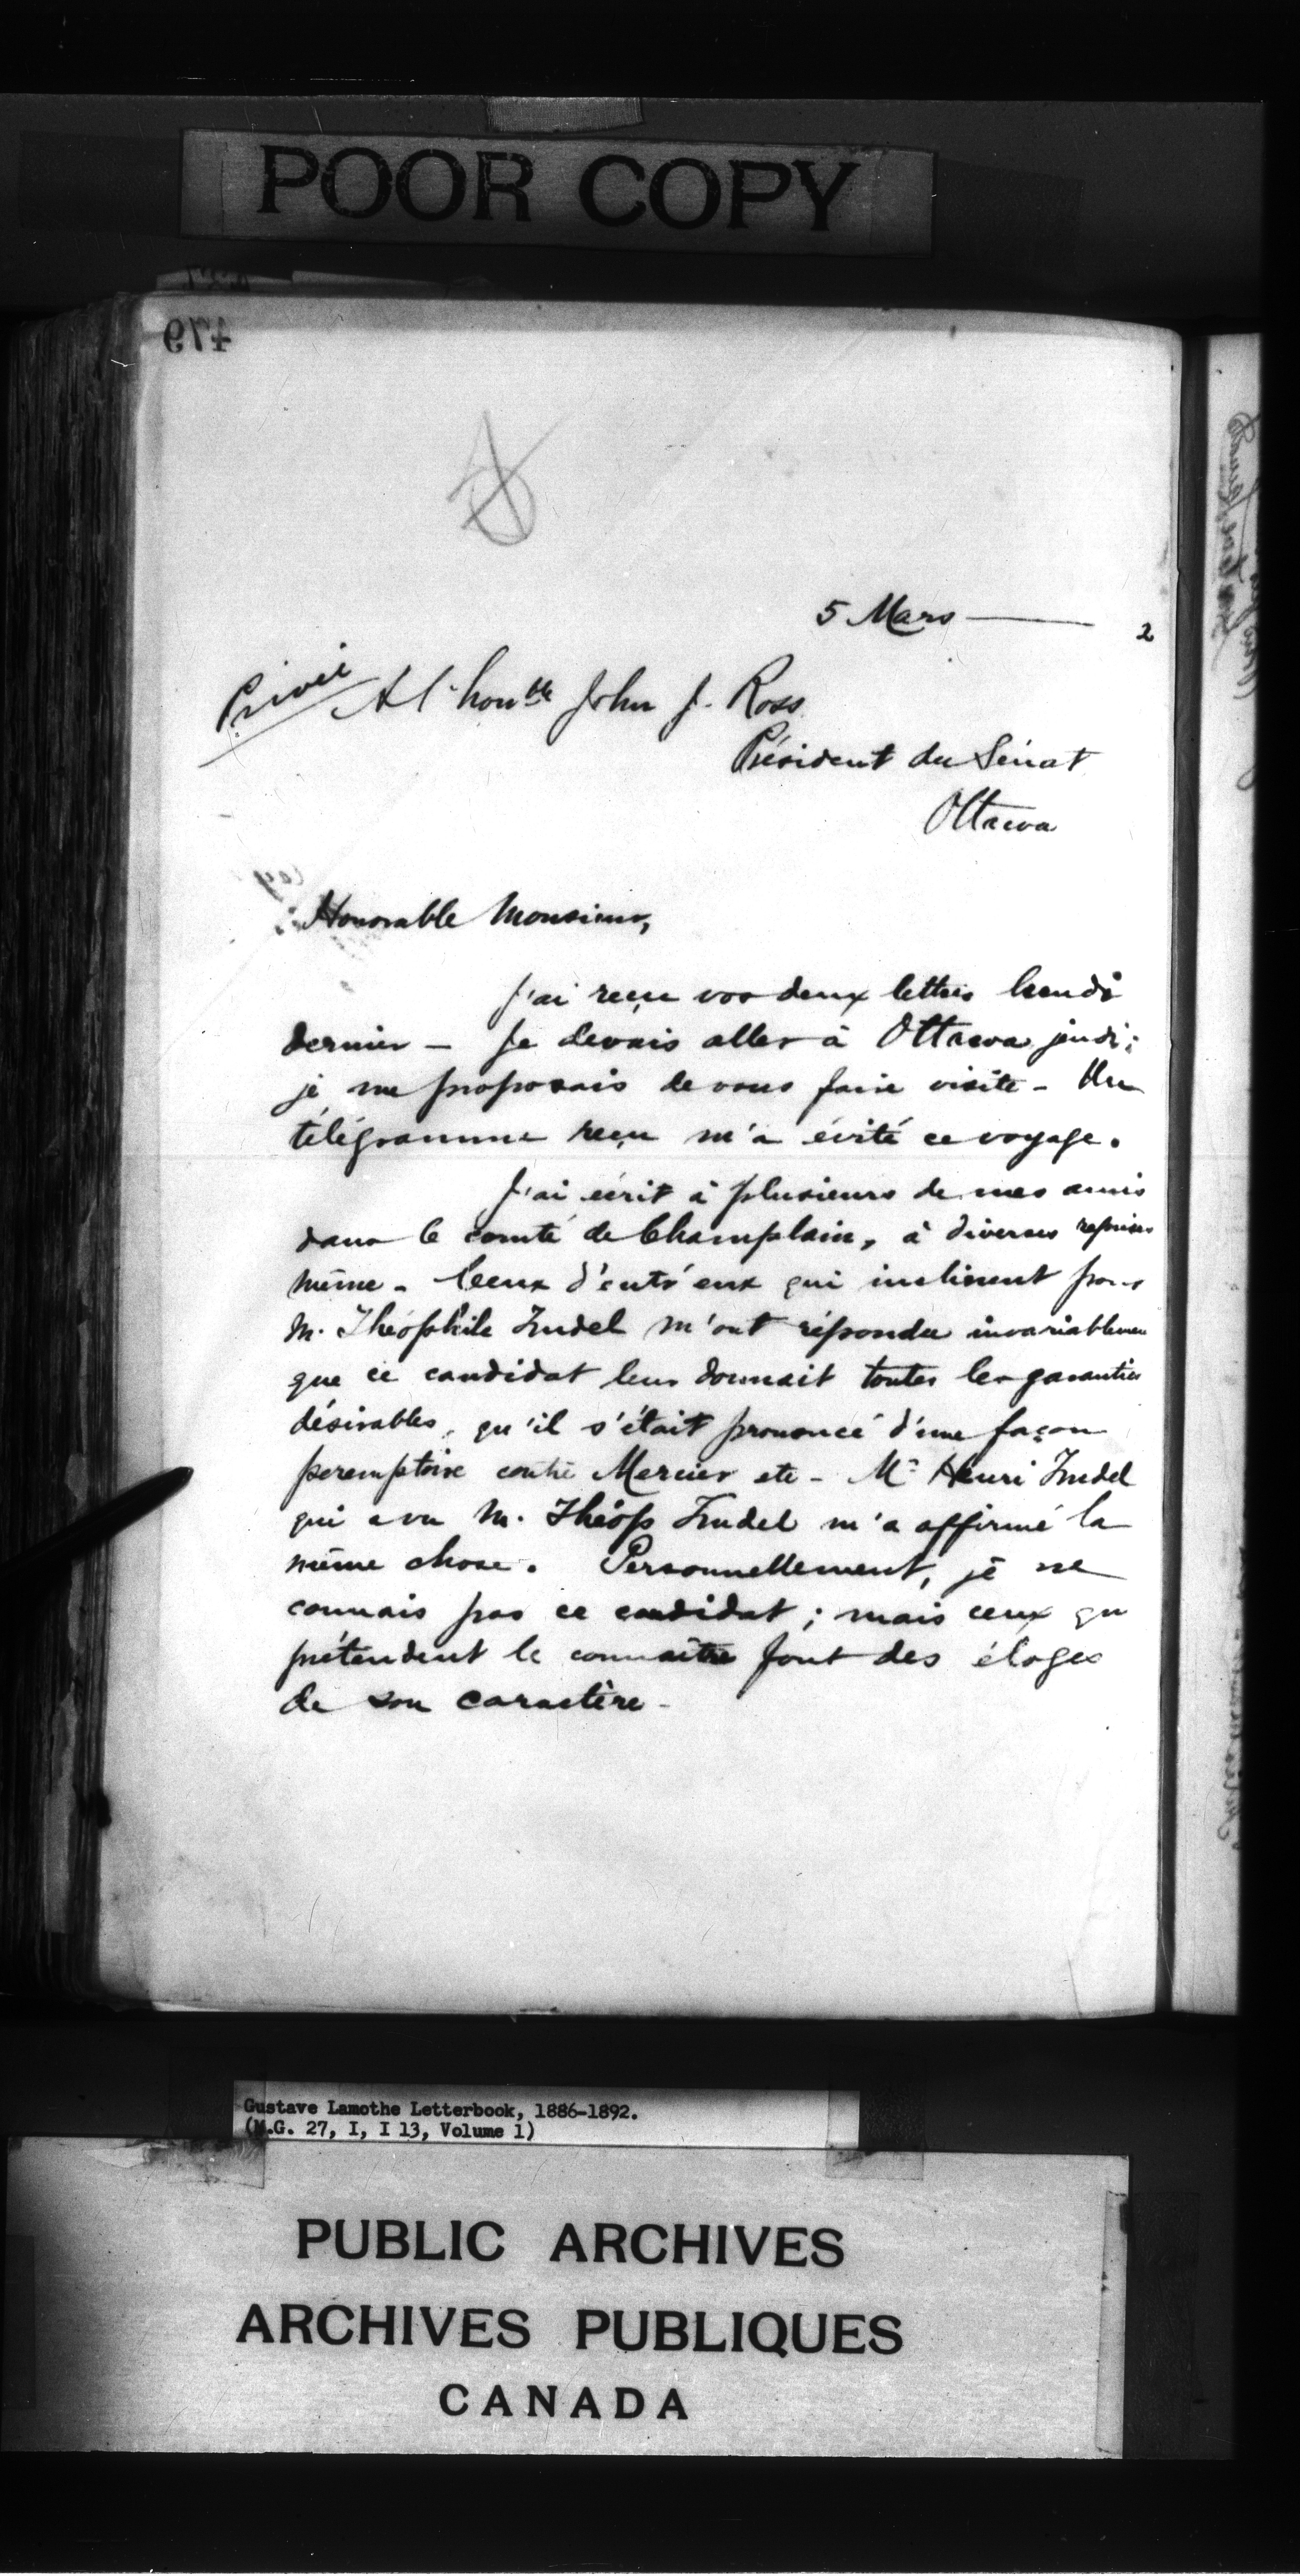 POOR COPY
479
5 Mars — 2
Privée A l'honble John J. Ross
Président du Sénat
Ottawa
Honorable Monsieur,
J'ai reçu vos deux lettres lundi
dernier — Je devais aller à Ottawa jeudi;
je me proposais de vous faire visite — Un
télégramme reçu m'a évité ce voyage.
J'ai écrit à plusieurs de mes amis
dans le comté de Champlain, à diverses reprises
même — Ceux d'entr'eux qui inclinent pour
M. Théophile Trudel m'ont répondu invariablemen
que ce candidat leur donnait toutes les garanties
désirables, qu'il s'était prononcé d'une façon
peremptoire contre Mercier etc — Mr Henri Trudel
qui a vu M. Théop Trudel m'a affirmé la
même chose. Personnellement, je ne
connais pas ce candidat; mais ceux qu
prétendent le connaître font des éloges
de son caractère —
Gustave Lamothe Letterbook, 1886-1892.
(M.G. 27, I, I 13, Volume 1)
PUBLIC ARCHIVES
ARCHIVES PUBLIQUES
CANADA